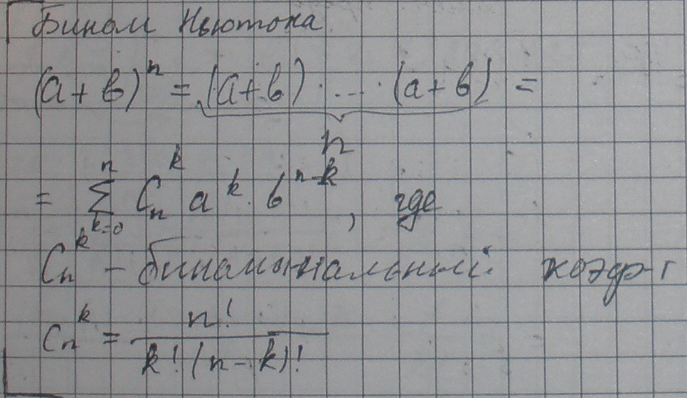 Бином Ньютона
(a+b)^n = (a+b) · ... · (a+b) =
n
= ∑_{k=0}^{n} C_n^k a^k · b^{n-k}, где
C_n^k – биномиальный коэф-т
C_n^k = n! / k! (n-k)!